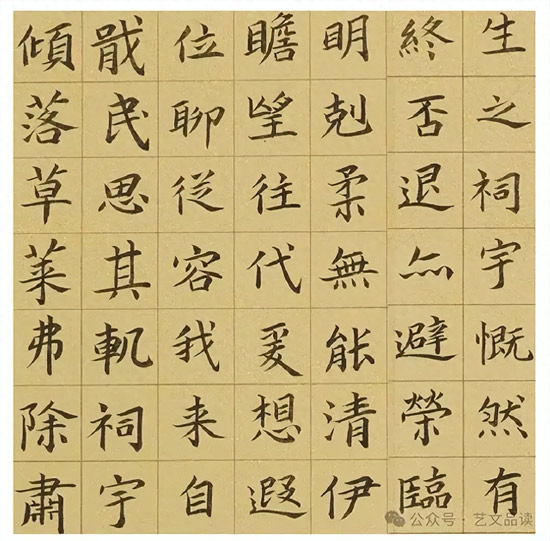 生之祠宇慨然有
終否退亦避榮臨
明剋柔無能清伊
瞻望往代爰想遐
位聊從容我来自
戢民思其軌祠宇
傾落草萊弗除肅
公众号·艺文品读